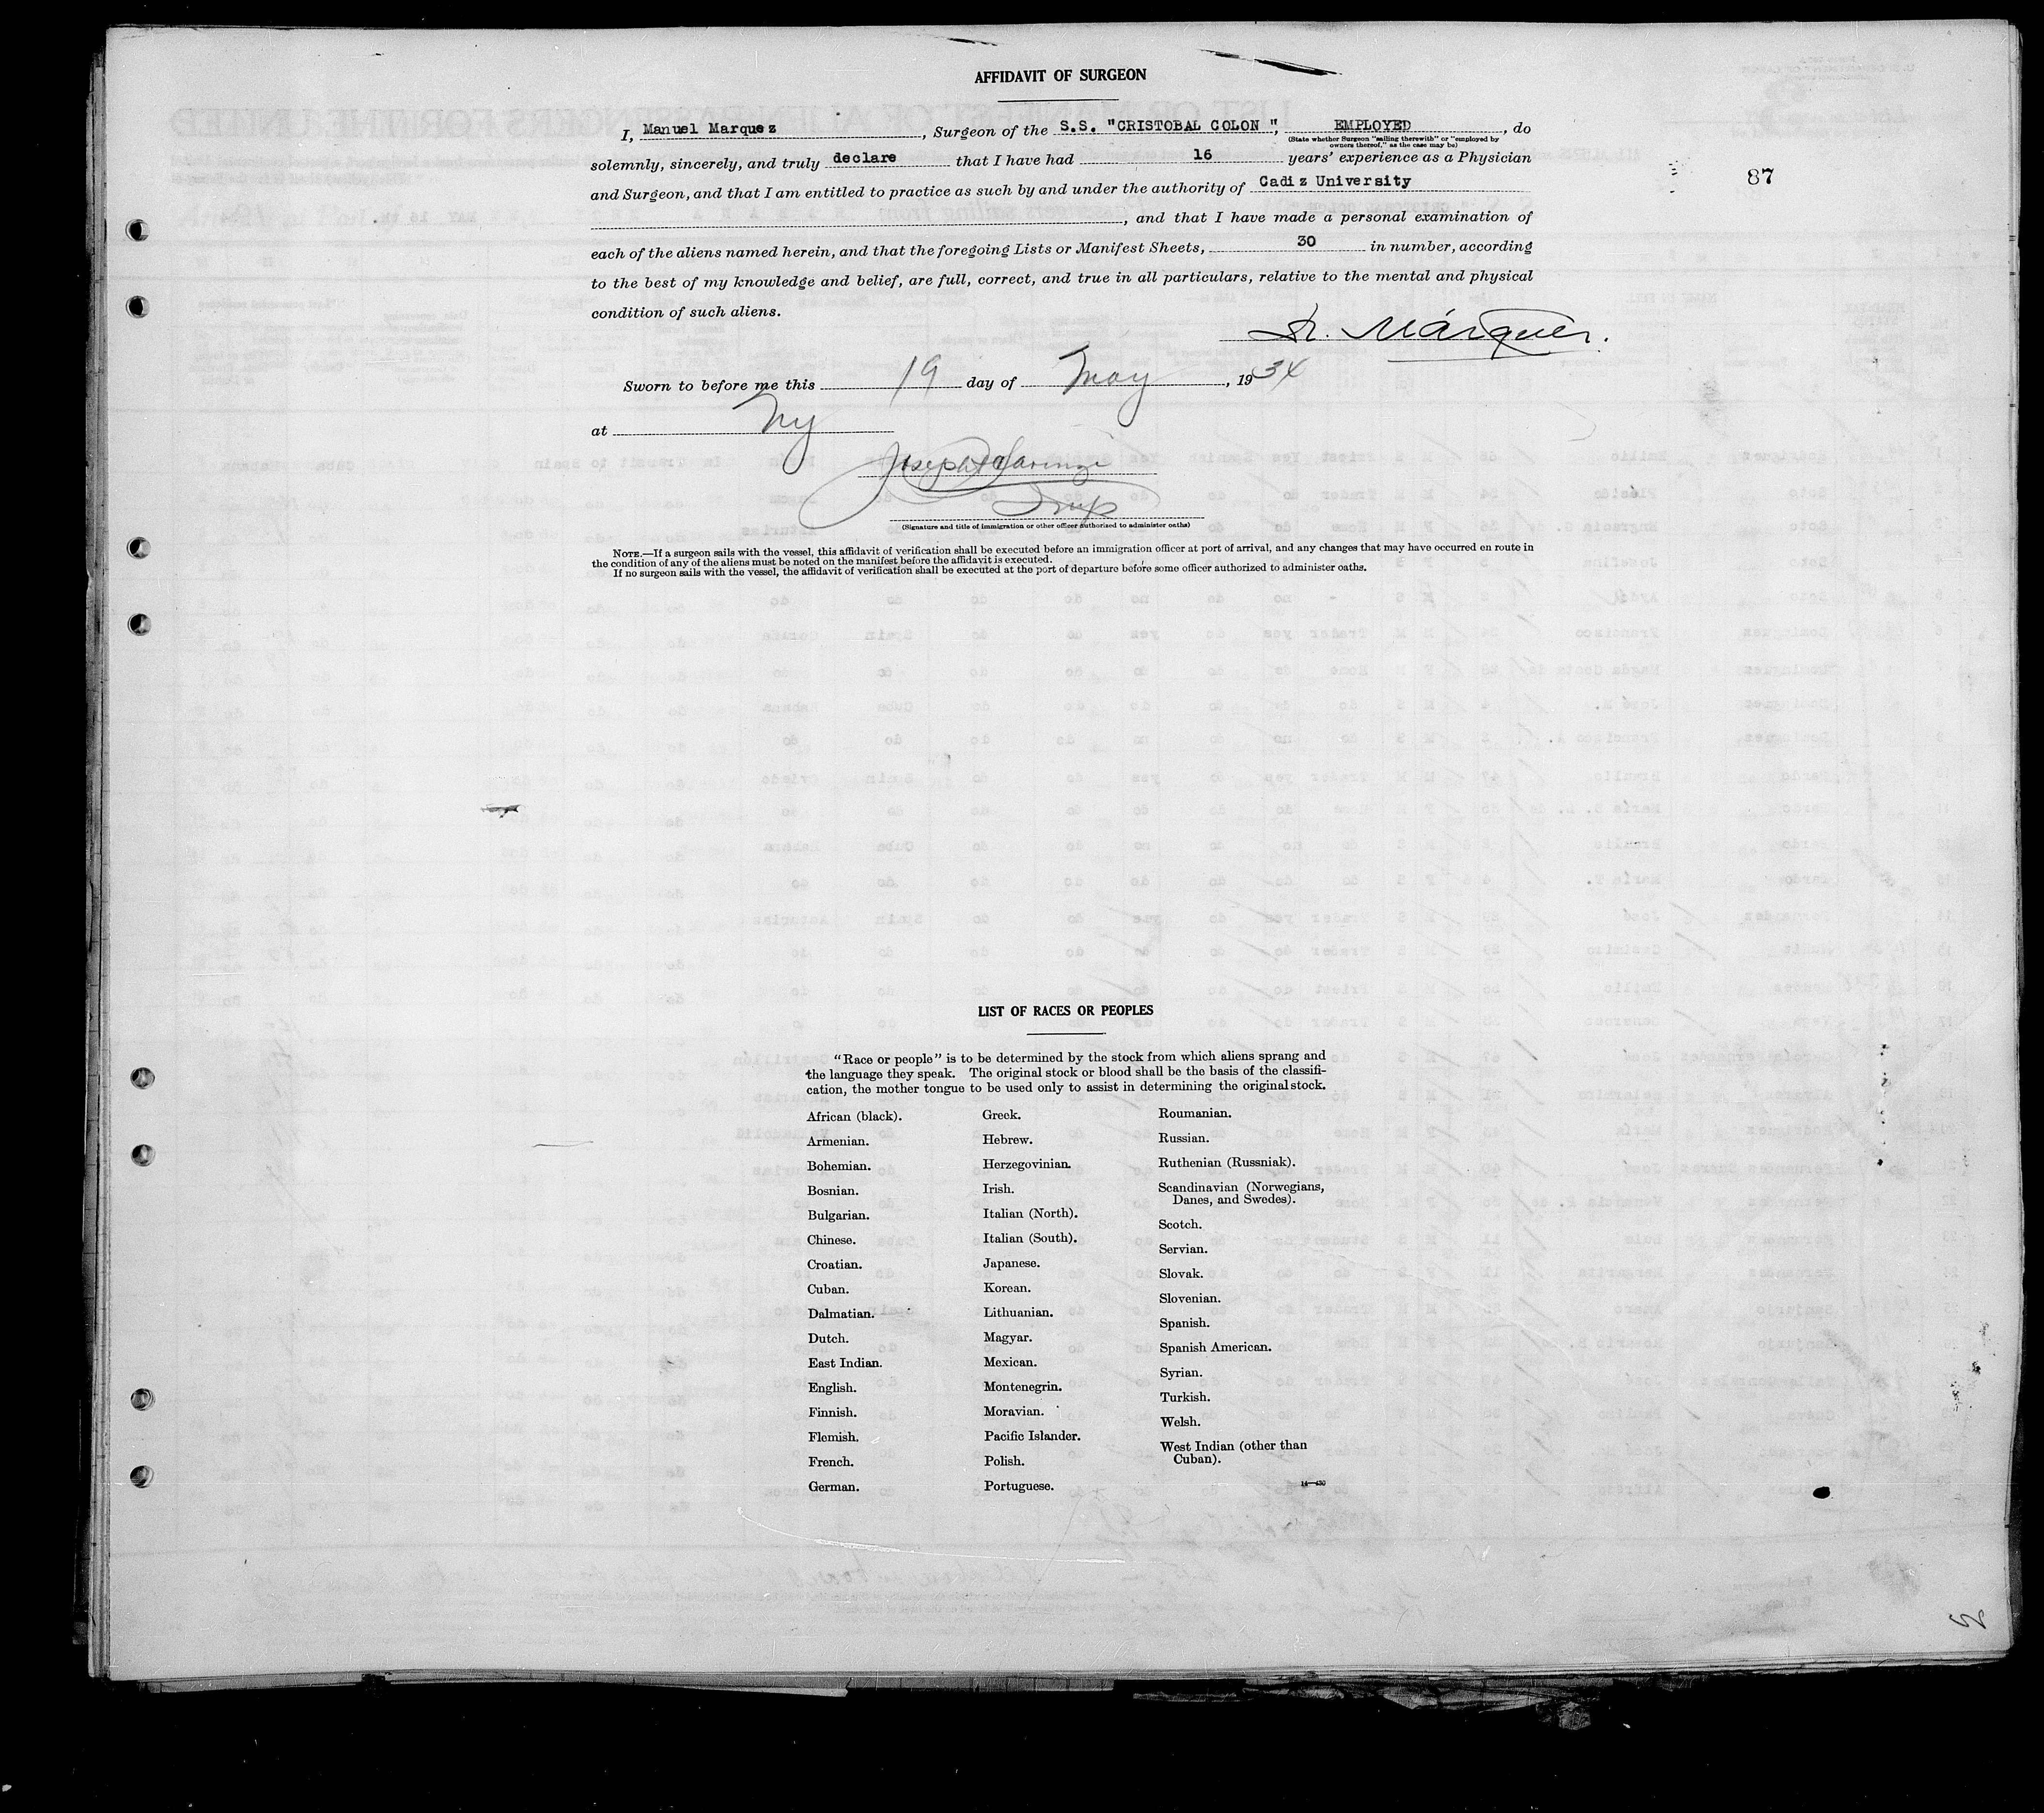 AFFIDAVIT OF SURGEON
I, Manuel Marquez, Surgeon of the S.S. "CRISTOBAL COLON ", EMPLOYED, do
(State whether Surgeon "sailing therewith" or "employed by
owners thereof," as the case may be)
solemnly, sincerely, and truly declare that I have had 16 years' experience as a Physician
87
and Surgeon, and that I am entitled to practice as such by and under the authority of Cadiz University
, and that I have made a personal examination of
each of the aliens named herein, and that the foregoing Lists or Manifest Sheets, 30 in number, according
to the best of my knowledge and belief, are full, correct, and true in all particulars, relative to the mental and physical
condition of such aliens.
Márquez.
Sworn to before me this 19 day of May, 1934
at NY
Joseph
Insp
(Signature and title of immigration or other officer authorized to administer oaths)
NOTE.—If a surgeon sails with the vessel, this affidavit of verification shall be executed before an immigration officer at port of arrival, and any changes that may have occurred en route in
the condition of any of the aliens must be noted on the manifest before the affidavit is executed.
If no surgeon sails with the vessel, the affidavit of verification shall be executed at the port of departure before some officer authorized to administer oaths.
LIST OF RACES OR PEOPLES
"Race or people" is to be determined by the stock from which aliens sprang and
the language they speak. The original stock or blood shall be the basis of the classifi-
cation, the mother tongue to be used only to assist in determining the original stock.
African (black).
Armenian.
Bohemian.
Bosnian.
Bulgarian.
Chinese.
Croatian.
Cuban.
Dalmatian.
Dutch.
East Indian.
English.
Finnish.
Flemish.
French.
German.
Greek.
Hebrew.
Herzegovinian.
Irish.
Italian (North).
Italian (South).
Japanese.
Korean.
Lithuanian.
Magyar.
Mexican.
Montenegrin.
Moravian.
Pacific Islander.
Polish.
Portuguese.
Roumanian.
Russian.
Ruthenian (Russniak).
Scandinavian (Norwegians,
Danes, and Swedes).
Scotch.
Servian.
Slovak.
Slovenian.
Spanish.
Spanish American.
Syrian.
Turkish.
Welsh.
West Indian (other than
Cuban).
14—430